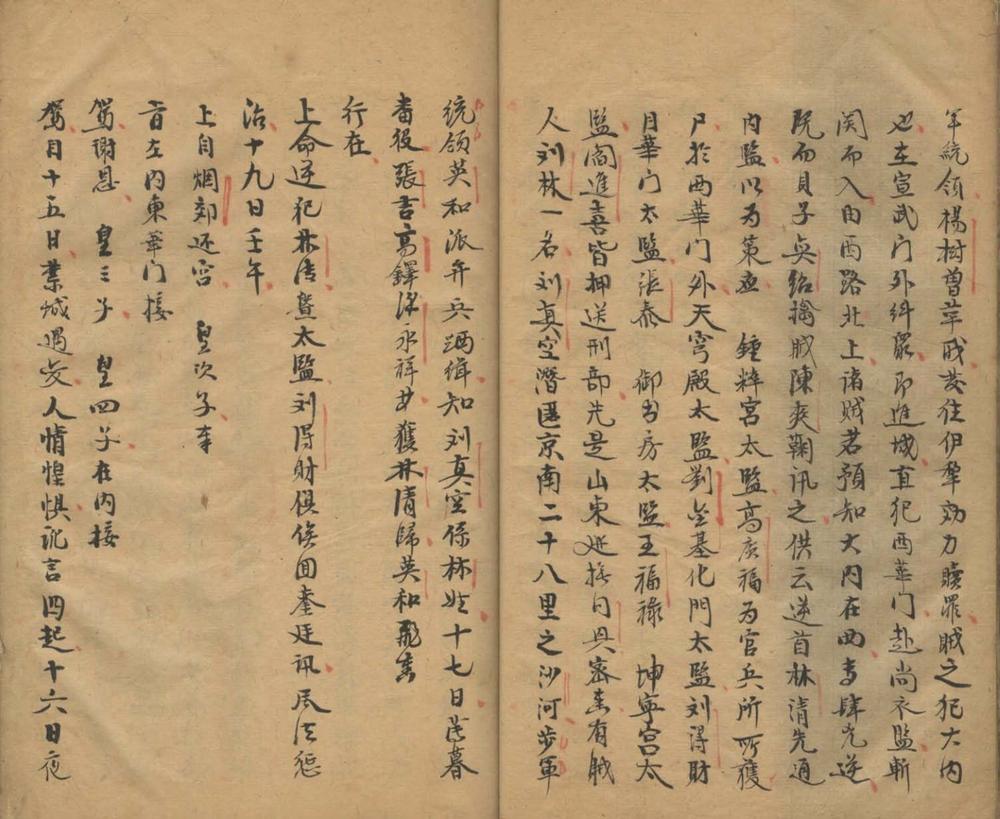 年統領楊树曾革职发往伊犁効力贖罪贼之犯大内
也在宣武门外纠眾即進城直犯西華门赴尚衣監斬
関而入由西路北上诸贼若预知大内在西者肆先逆
既而貝子奕绍擒贼陳爽鞫讯之供云逆首林清先通
内監以为策应 鍾粹宫太監高庆福为官兵所歼獲
尸於西華门外天穹殿太監劉金基化門太監刘得財
月華门太監張泰 御书房太監王福禄 坤寧宫太
監阎進喜皆押送刑部先是山東巡抚同興密奏有贼
人刘林一名刘真空潛匿京南二十八里之沙河步軍
统领英和派弁兵洒缉知刘真空係林姓十七日薄暮
番役張吉高鐸洪永祥等獲林清歸英和飛奏
行在
上命逆犯林清暨太監刘得財俱俟囬銮廷讯尽法惩
治十九日壬午
上自烟郊还宫 皇次子奉
旨在内東華门接
駕謝恩 皇三子 皇四子在内接
駕月十五日禁城遇变人情惶惧讹言四起十六日夜